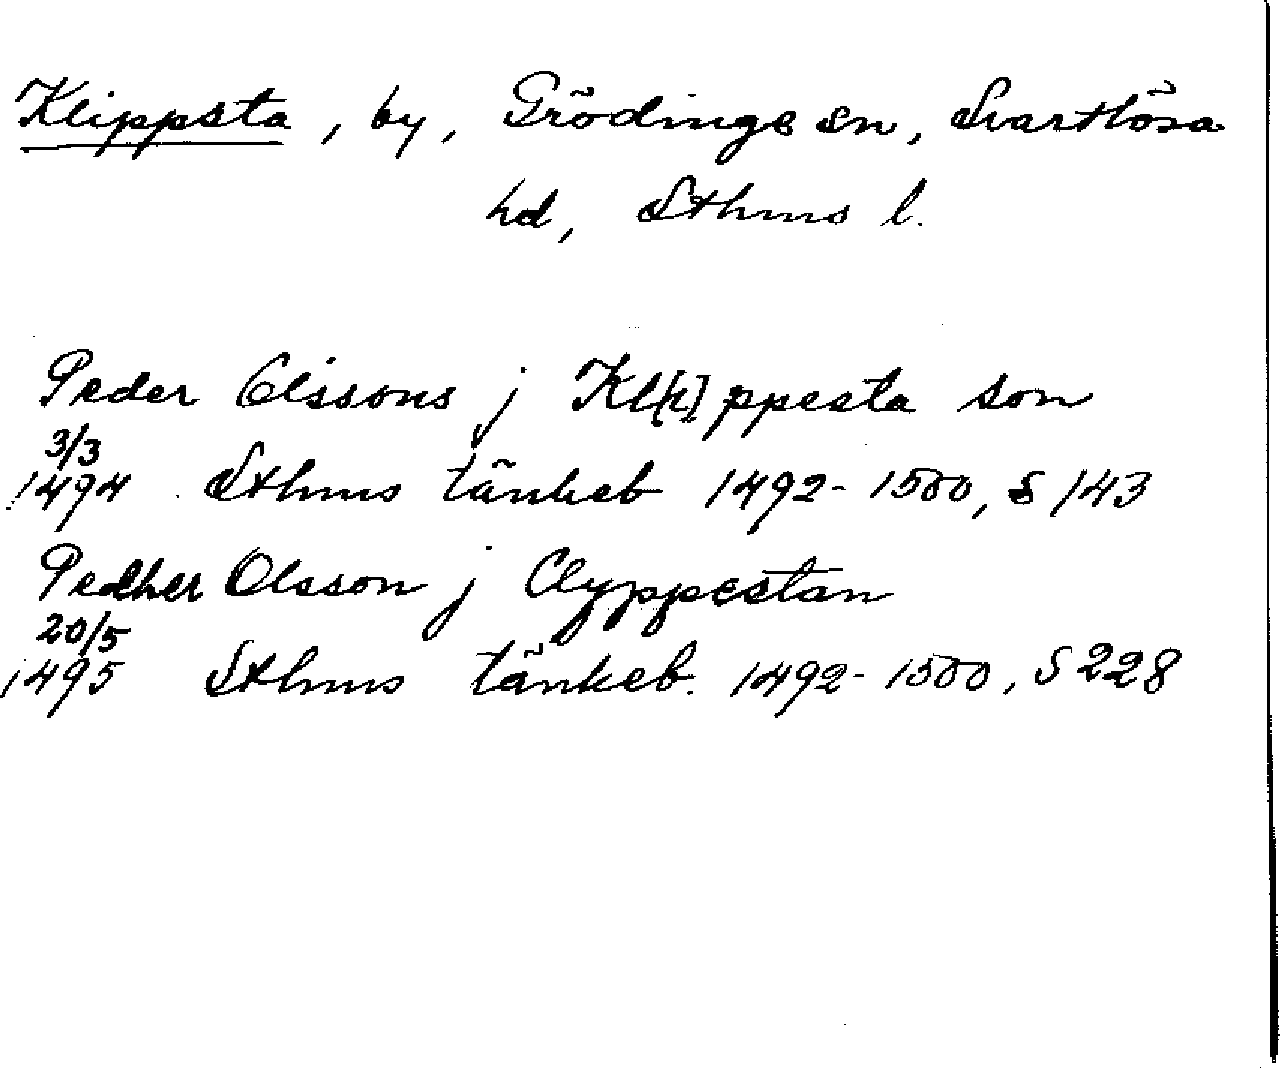 Klippsta, by, Grödinge sn, Svartlösa
hd, Sthms l.
Peder Olssons j Kl[i]ppesta son
3/3
1494 Sthms tänkeb 1492-1500, S 143
Pedher Olsson j Clyppestan
20/5
1495 Sthms tänkeb. 1492-1500, S 228